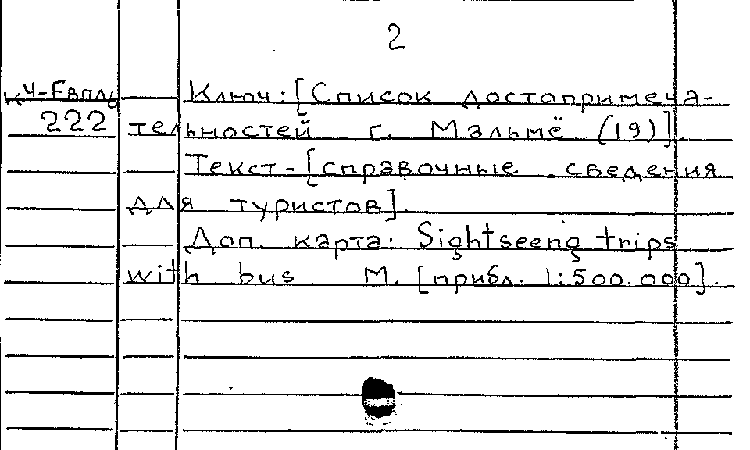 2
Ключ: [Список достопримеча-
222 тельностей г. Мальмё (19)].
Текст - [справочные сведения
для туристов].
Доп. карта: Sightseeng trips
with bus М. [прибл. 1:500.000].